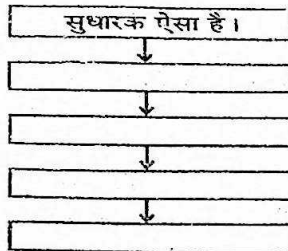 सुधारक ऐसा है।